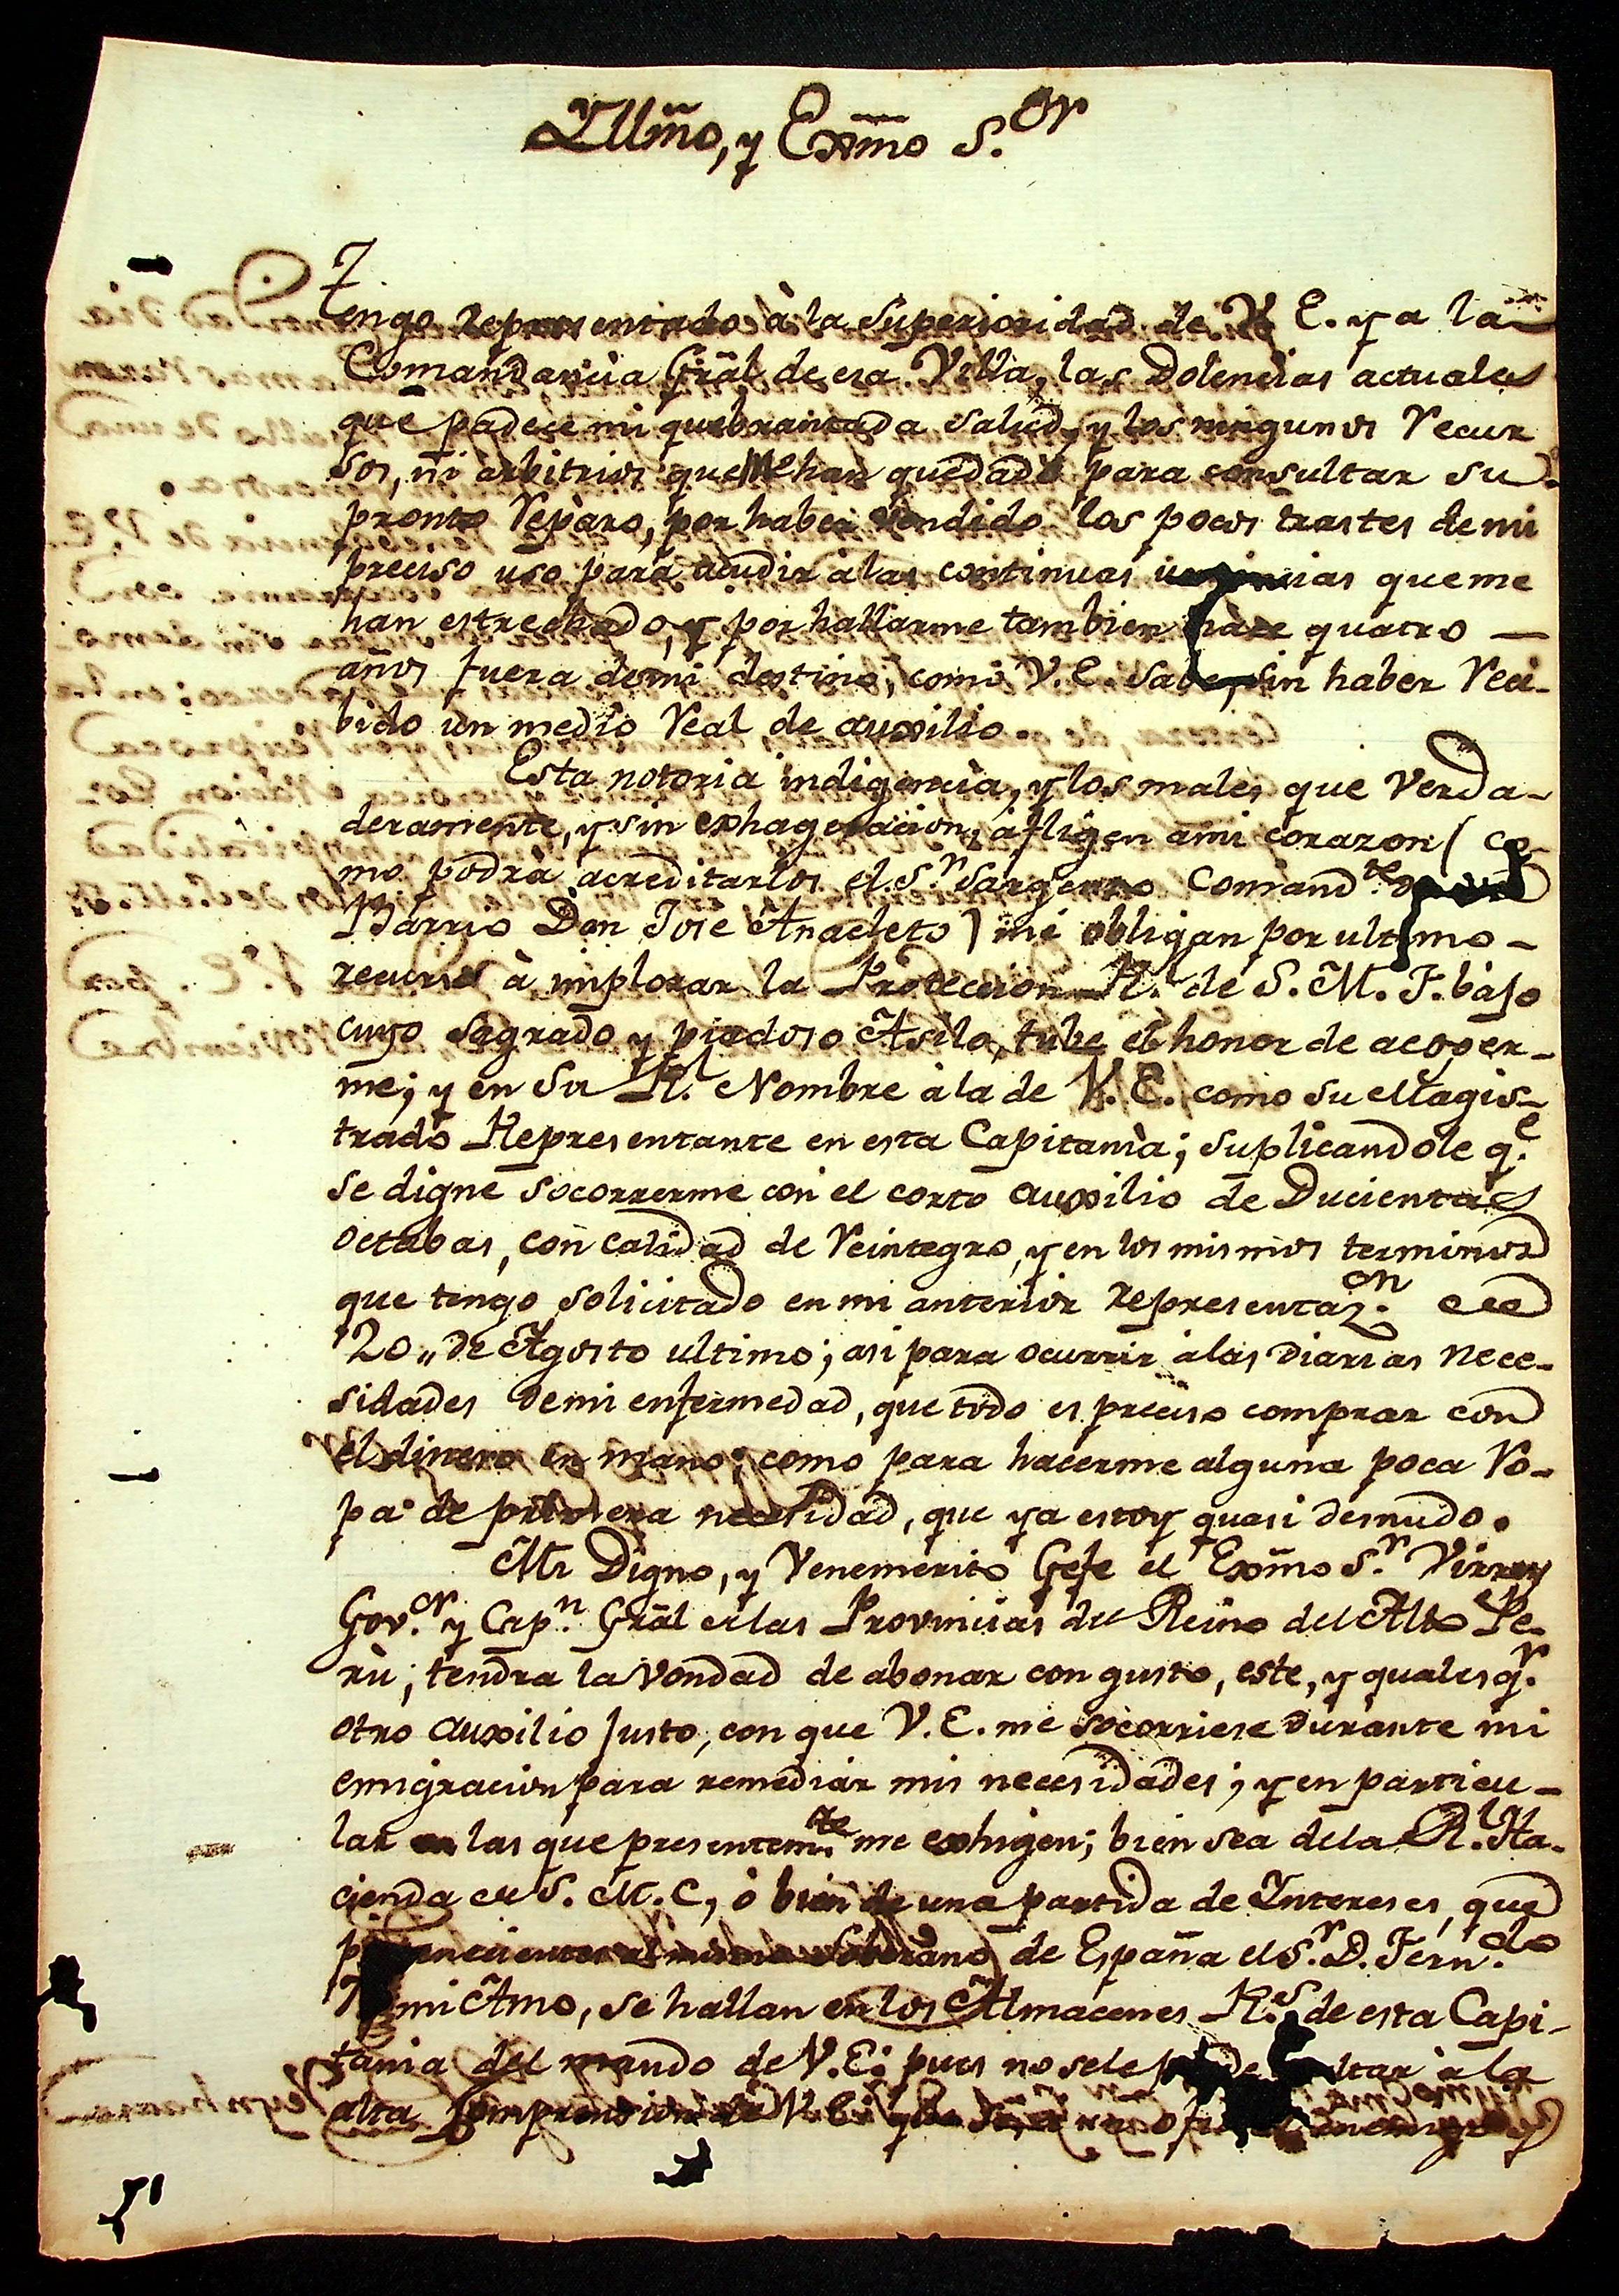 Yllm̃o, y Exm̃o S.or
Tengo representado à la Superioridad de V. E. y a la
Comandancia Grãl de esa Villa, las Dolencias actuales
que padece mi quebrantada salud, y los ningunos recur
sos, ni arbitrios que me han quedado para consultar su
pronto reparo, por haber vendido los pocos trastes de mi
preciso uso para acudir a las continuas que me
han estrechado, y por hallarme tambien hàce quatro —
años fuera de mi destino, como V. E. sabe, sin haber reci-
bido un medio real de auxilio.
Esta notoria indigencia, y los males que verda-
deramente, y sin exhageracion, afligen a mi corazon ( co-
mo podrà acreditarlos el S.n Sargento Comand.te
Barrio Don Jose Anacleto ) me obligan por ultimo -
recurso à implorar la Proteccion R.l de S. M. F. bajo
cuyo sagrado y piadoso Asilo, tube el honor de acojer-
me; y en su R.l Nombre a la de V. E. como su Magis-
trado Representante en esta Capitanìa; suplicandole q.e
se digne socorrerme con el corto auxilio de Ducientas
octabas, con calidad de reintegro, y en los mismos terminos
que tengo solicitado en mi anterior representaz.on de
20,, de Agosto ultimo; asi para ocurrir a las diarias nece-
sidades de mi enfermedad, que todo es preciso comprar con
el dinero en mano; como para hacerme alguna poca ro-
pa de primera necesidad, que ya estoy quasi desnudo.
Mi Digno, y Venemerito Gefe el Exm̃o S.r Virrey
Gov.or y Cap.n Grãl de las Provincias del Reino del Alto Pe-
rù; tendra la vondad de abonar con gusto, este, y qualesq.r
otro auxilio justo, con que V. E. me socorriese durante mi
emigracion para remediar mis necesidades; y en particu-
lar en las que presentem.te me exhigen; bien sea de la R.l Ha-
cienda de S. M. C, ò bien de una partida de Intereses, que
pertenecientes al mismo Soberano de España el S.r D. Fern.do
7 mi Amo, se hallan en los Almacenes R.s de esta Capi-
tania del mando de V. E: pues no se le puede ocultar à la
alta comprension de V. E. que